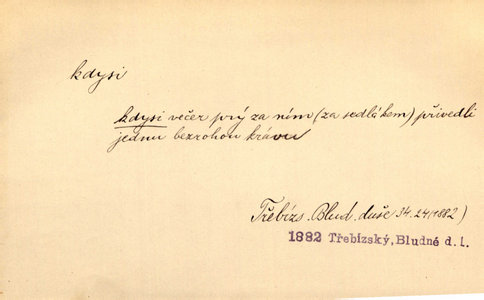 kdysi
kdysi večer prý za ním (za sedlákem) přivedli
jednu bezrohou krávu
Třebízs. Blud. duše 34. 24 (1882)
1882 Třebízský, Bludné d. 1.